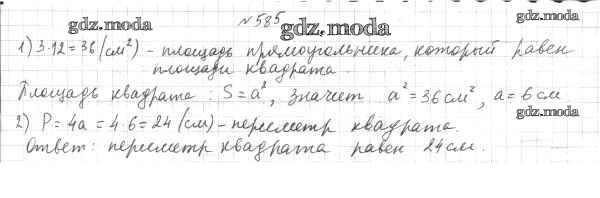 №585
gdz.moda gdz.moda gdz.moda
1) 3·12=36 (см²) - площадь прямоугольника, который равен
площади квадрата
Площадь квадрата: S=a², значит a²=36см², a=6см
2) P=4a=4·6=24 (см) - периметр квадрата.
gdz.moda
Ответ: периметр квадрата равен 24см.